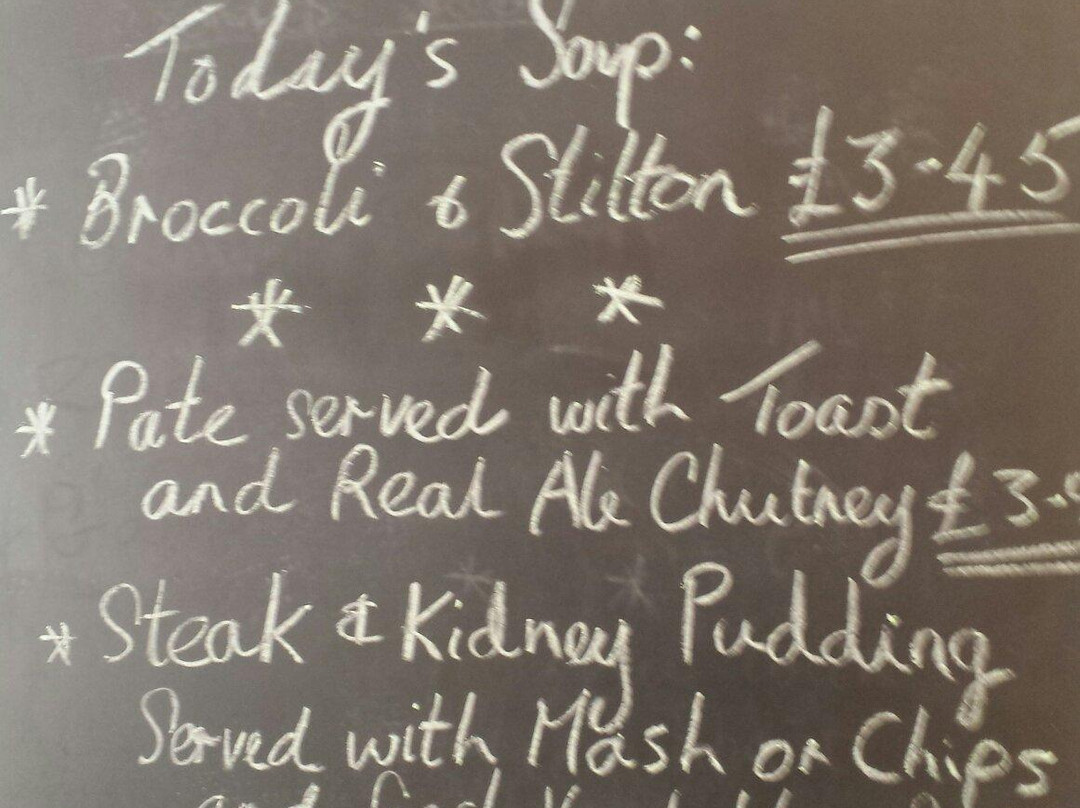 Today's Soup:
* Broccoli & Stilton £3.45
* * *
* Pate served with Toast
and Real Ale Chutney £3.
* Steak & Kidney Pudding
Served with Mash or Chips
and